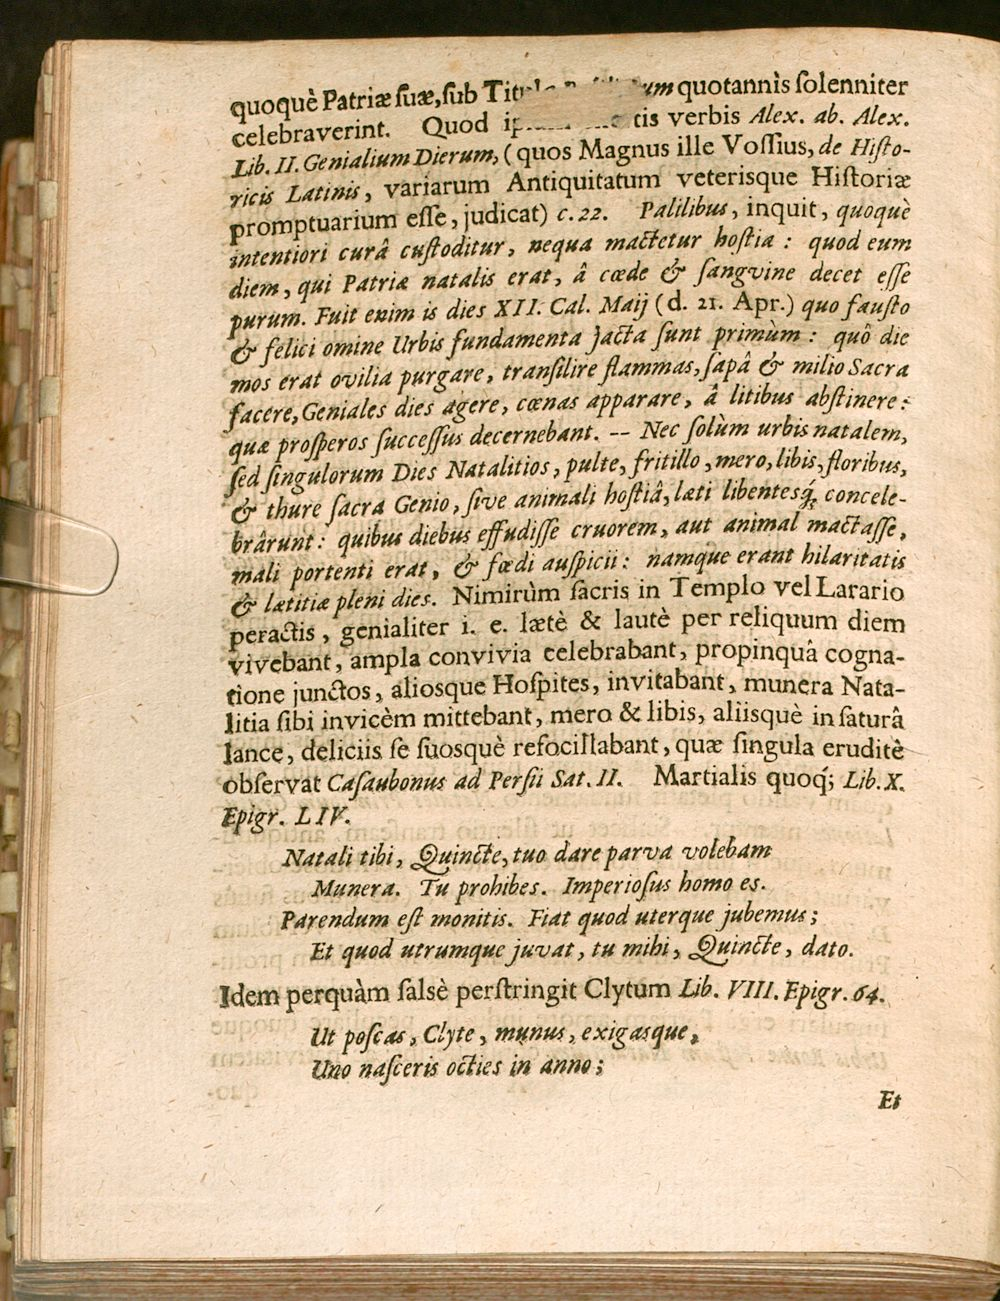 quoquè Patriæ ſuæ, ſub Titulo quotannìs ſolenniter
celebraverint. Quod verbis Alex. ab. Alex.
Lib. II. Genialium Dierum, (quos Magnus ille Voſſius, de Hiſto-
ricis Latinis, variarum Antiquitatum veterisque Hiſtoriæ
promptuarium eſſe, judicat) c. 22. Palilibus, inquit, quoquè
intentiori curâ cuſtoditur, nequa mactetur hoſtia : quod eum
diem, qui Patriæ natalis erat, â cœde & ſangvine decet eſſe
purum. Fuit enim is dies XII. Cal. Maij (d. 21. Apr.) quo fauſto
& felici omine Urbis fundamenta jacta ſunt primùm : quô die
mos erat ovilia purgare, tranſilire flammas, ſapâ & milio Sacra
facere, Geniales dies agere, cœnas apparare, â litibus abſtinere:
quæ proſperos ſucceſſus decernebant. -- Nec ſolùm urbis natalem,
ſed ſingulorum Dies Natalitios, pulte, fritillo, mero, libis, floribus,
& thure ſacra Genio, ſive animali hoſtiâ, læti libentesq́; concele-
brârunt: quibus diebus effudiſſe cruorem, aut animal mactaſſe,
mali portenti erat, & fœdi auſpicii: namque erant hilaritatis
& lætitiæ pleni dies. Nimirùm ſacris in Templo vel Larario
peractis, genialiter i. e. lætè & lautè per reliquum diem
vivebant, ampla convivia celebrabant, propinquâ cogna-
tione junctos, aliosque Hoſpites, invitabant, munera Nata-
litia ſibi invicèm mittebant, mero & libis, aliisquè in ſaturâ
lance, deliciis ſe ſuosquè refocillabant, quæ ſingula eruditè
obſervat Caſaubonus ad Perſii Sat. II. Martialis quoq́; Lib. X.
Epigr. LIV.
Natali tibi, Quincte, tuo dare parva volebam
Munera. Tu prohibes. Imperioſus homo es.
Parendum eſt monitis. Fiat quod uterque jubemus;
Et quod utrumque juvat, tu mihi, Quincte, dato.
Idem perquàm ſalsè perſtringit Clytum Lib. VIII. Epigr. 64.
Ut poſcas, Clyte, munus, exigasque,
Uno naſceris octies in anno;
Et